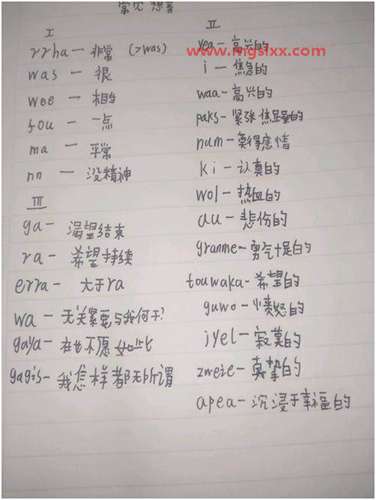 常见想音
www.mgslxx.com
I
rrha—非常 (>was)
was—很
wee—相当
fou—一点
ma—平常
nn—没精神
III
ga—渴望结束
ra—希望持续
erra—大于ra
wa—无关紧要与我何干?
gaya—在也不愿如此
gagis—我怎样都无所谓
II
yea—高兴的
i—焦急的
waa—高兴的
paks—紧张焦虑的
num—莫得感情
ki—认真的
wol—热血的
au—悲伤的
granme—勇气十足的
touwaka—希望的
guwo—愤怒的
iyel—寂寞的
zweie—真挚的
apea—沉浸于幸福的